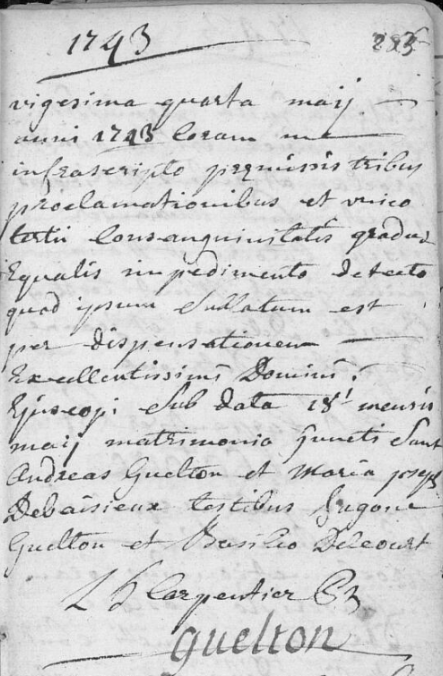 1743
vigesima quarta maij
anni 1743 Coram me
infrascripto premissis tribus
proclamationibus et unico
tertii Consanguinitatis gradus
Equalis impedimento detecto
quod ipsum Sublatum est
per dispensationem
Excellentissimi Domini
Episcopi Sub data 18 mensis
maij matrimonio juncti Sunt
Andreas Guelton et Maria joseph
Debaisieux testibus
Guelton et Basilio Delcourt
Carpentier
guelton